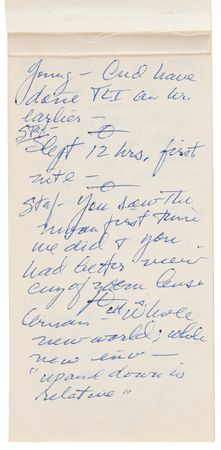 Young - Cud have
done TLI an hr.
earlier -
Staf -
Slept 12 hrs, first
nite -
Staf - You saw the
moon first time
we did & you
had better view
cuz of zoom lense
Cernan - "It's whole
new world; whole
new env -
"up and down is
relative"